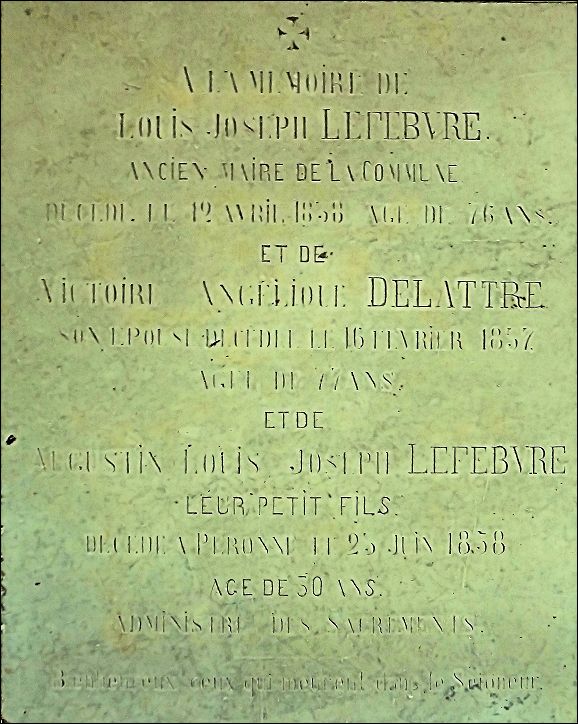 A LA MEMOIRE DE
LOUIS JOSEPH LEFEBVRE.
ANCIEN MAIRE DE LA COMMUNE
DECEDE LE 12 AVRIL 1858 AGE DE 76 ANS.
ET DE
VICTOIRE ANGELIQUE DELATTRE
SON EPOUSE DECEDEE LE 16 FEVRIER 1857.
AGEE DE 77 ANS.
ET DE
AUGUSTIN LOUIS JOSEPH LEFEBVRE
LEUR PETIT FILS.
DECEDE A PERONNE LE 25 JUIN 1858
AGE DE 30 ANS.
ADMINISTRE DES SACREMENTS.
Bienheureux ceux qui meurent dans le Seigneur.